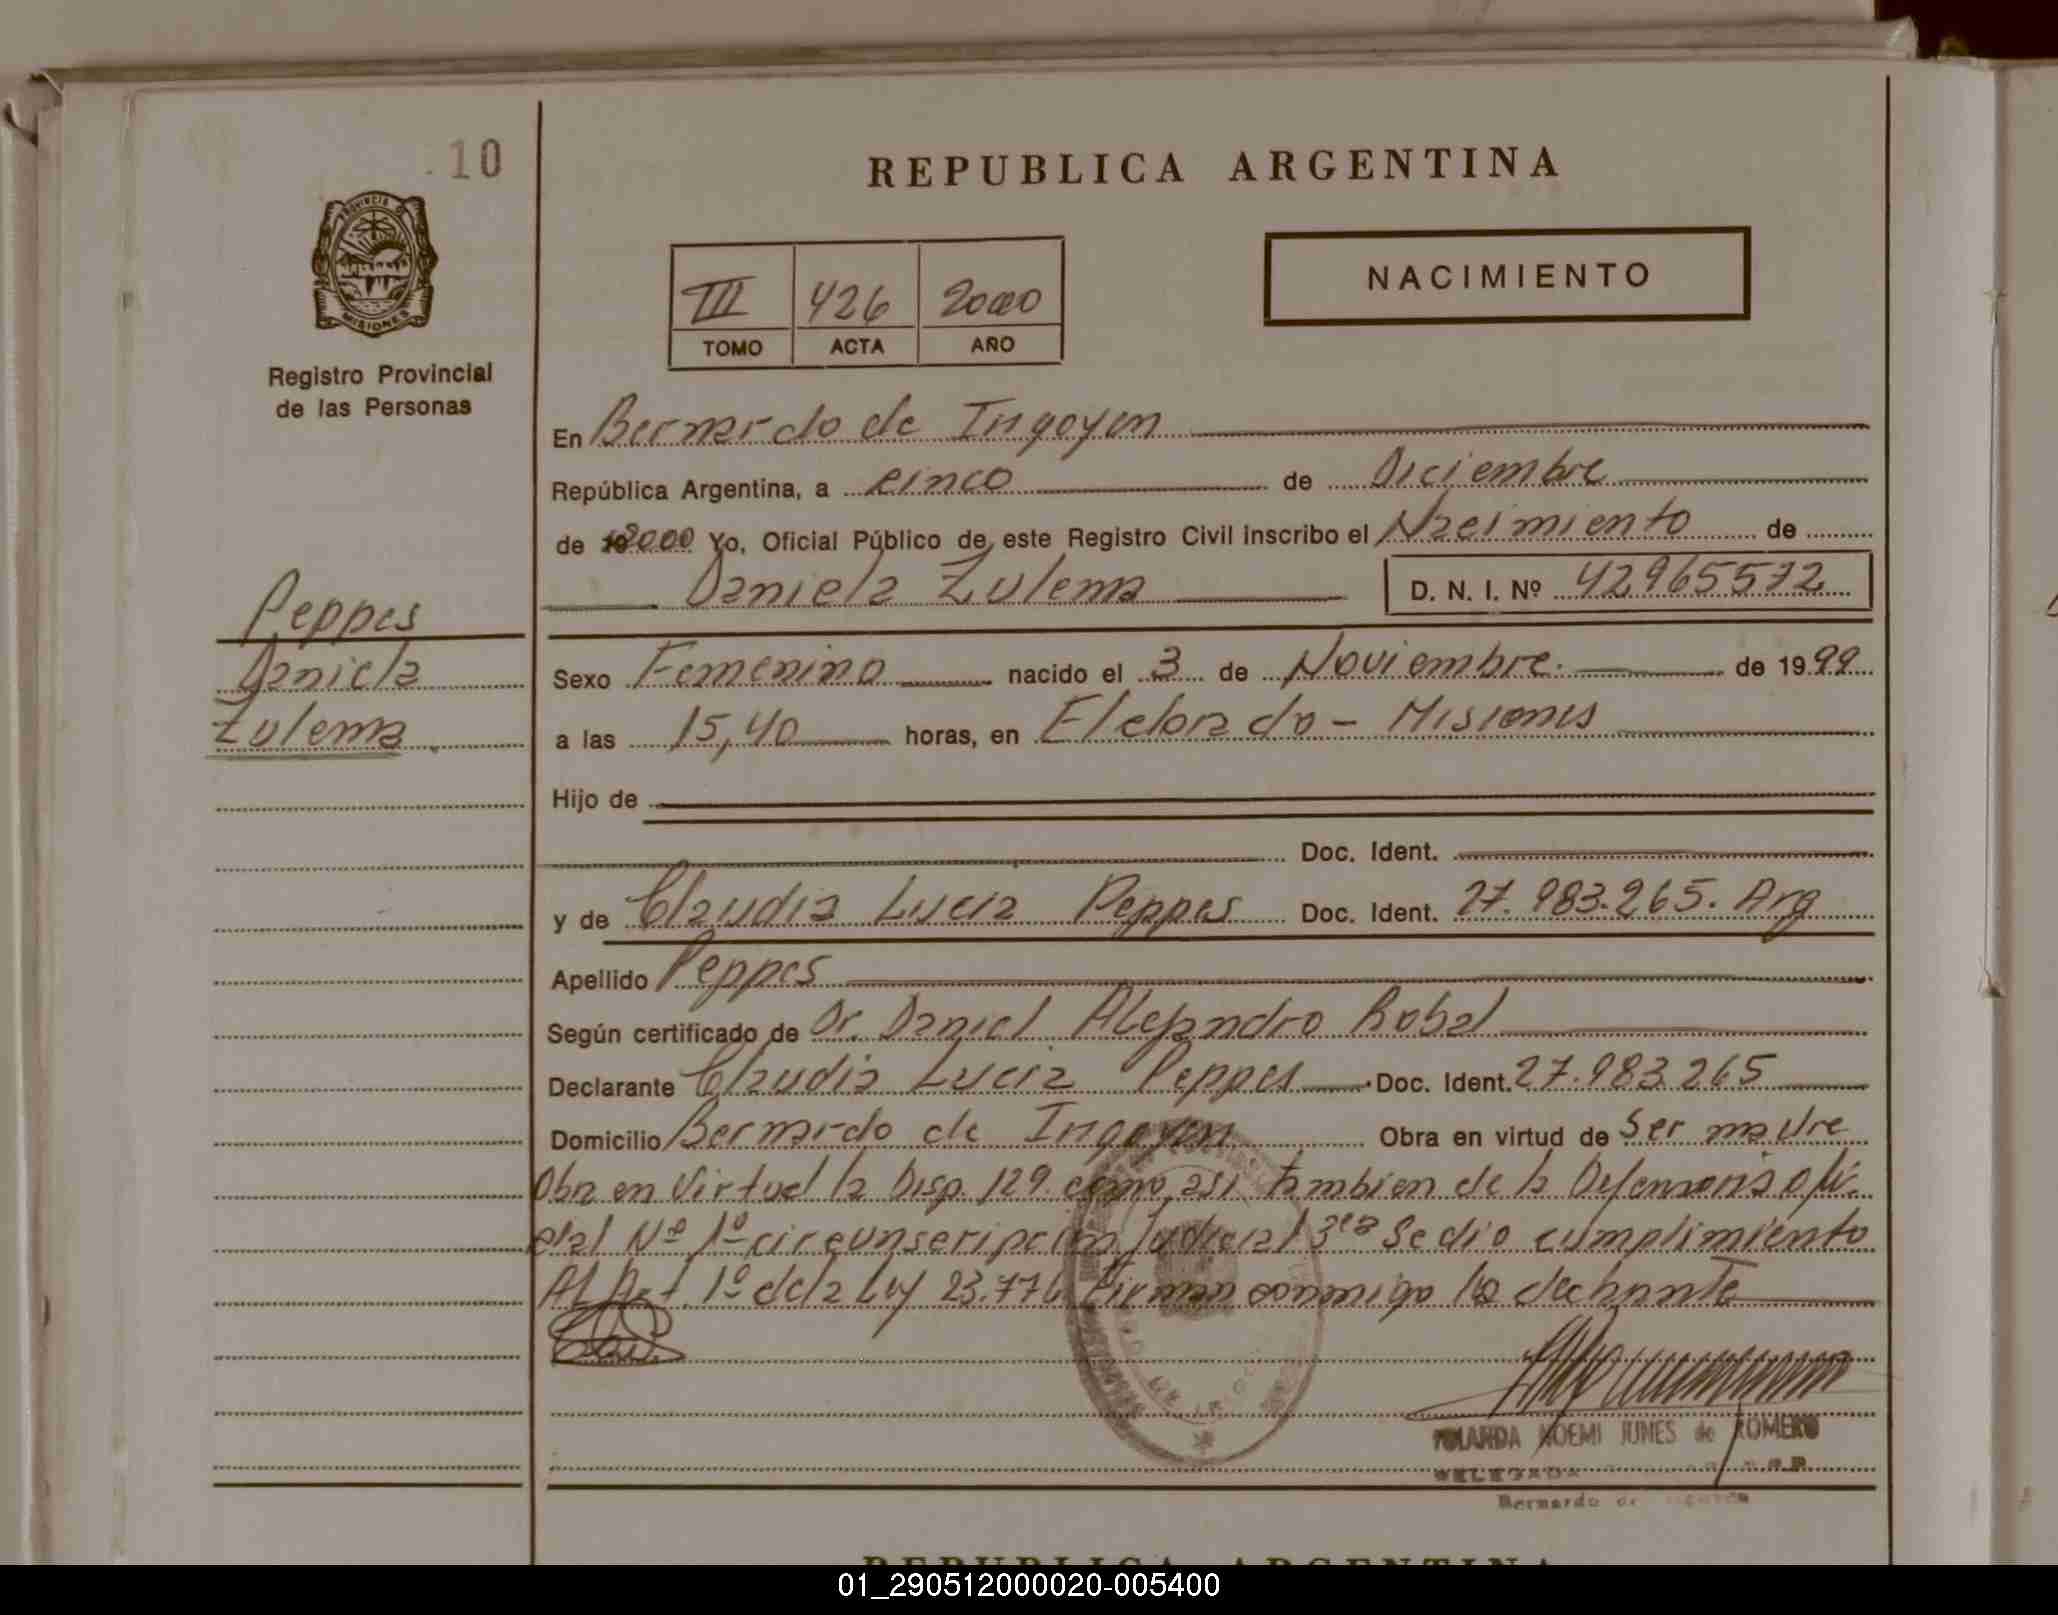 10
REPUBLICA ARGENTINA
PROVINCIA D
MISIONES
Registro Provincial
de las Personas
NACIMIENTO
III 426 2000
TOMO ACTA AÑO
En Bernardo de Irigoyen
República Argentina, a cinco de Diciembre
de 2000 Yo, Oficial Público de este Registro Civil inscribo el Nacimiento de
Daniela Zulema D. N. I. Nº 42965572
Peppes
Daniela
Zulema
Sexo Femenino nacido el 3 de Noviembre. de 1999
a las 15,40 horas, en Eldorado - Misiones
Hijo de
Doc. Ident.
y de Claudia Lucia Peppes Doc. Ident. 27.983.265. Arg
Apellido Peppes
Según certificado de Dr. Daniel Alejandro Robal
Declarante Claudia Lucia Peppes Doc. Ident. 27.983.265
Domicilio Bernardo de Irigoyen Obra en virtud de Ser madre
Obra en Virtud la Disp. 129. como asi tambien de la Defensoria ofi-
cial Nº 1º circunscripcion Judicial 3era Se dio cumplimiento
Al Art. 1º de la Ley 23.776 Firman conmigo la declarante
YOLANDA NOEMI JUNES de ROMERO
DELEGADA
Bernardo de Irigoyen
REPUBLICA ARGENTINA
01_290512000020-005400